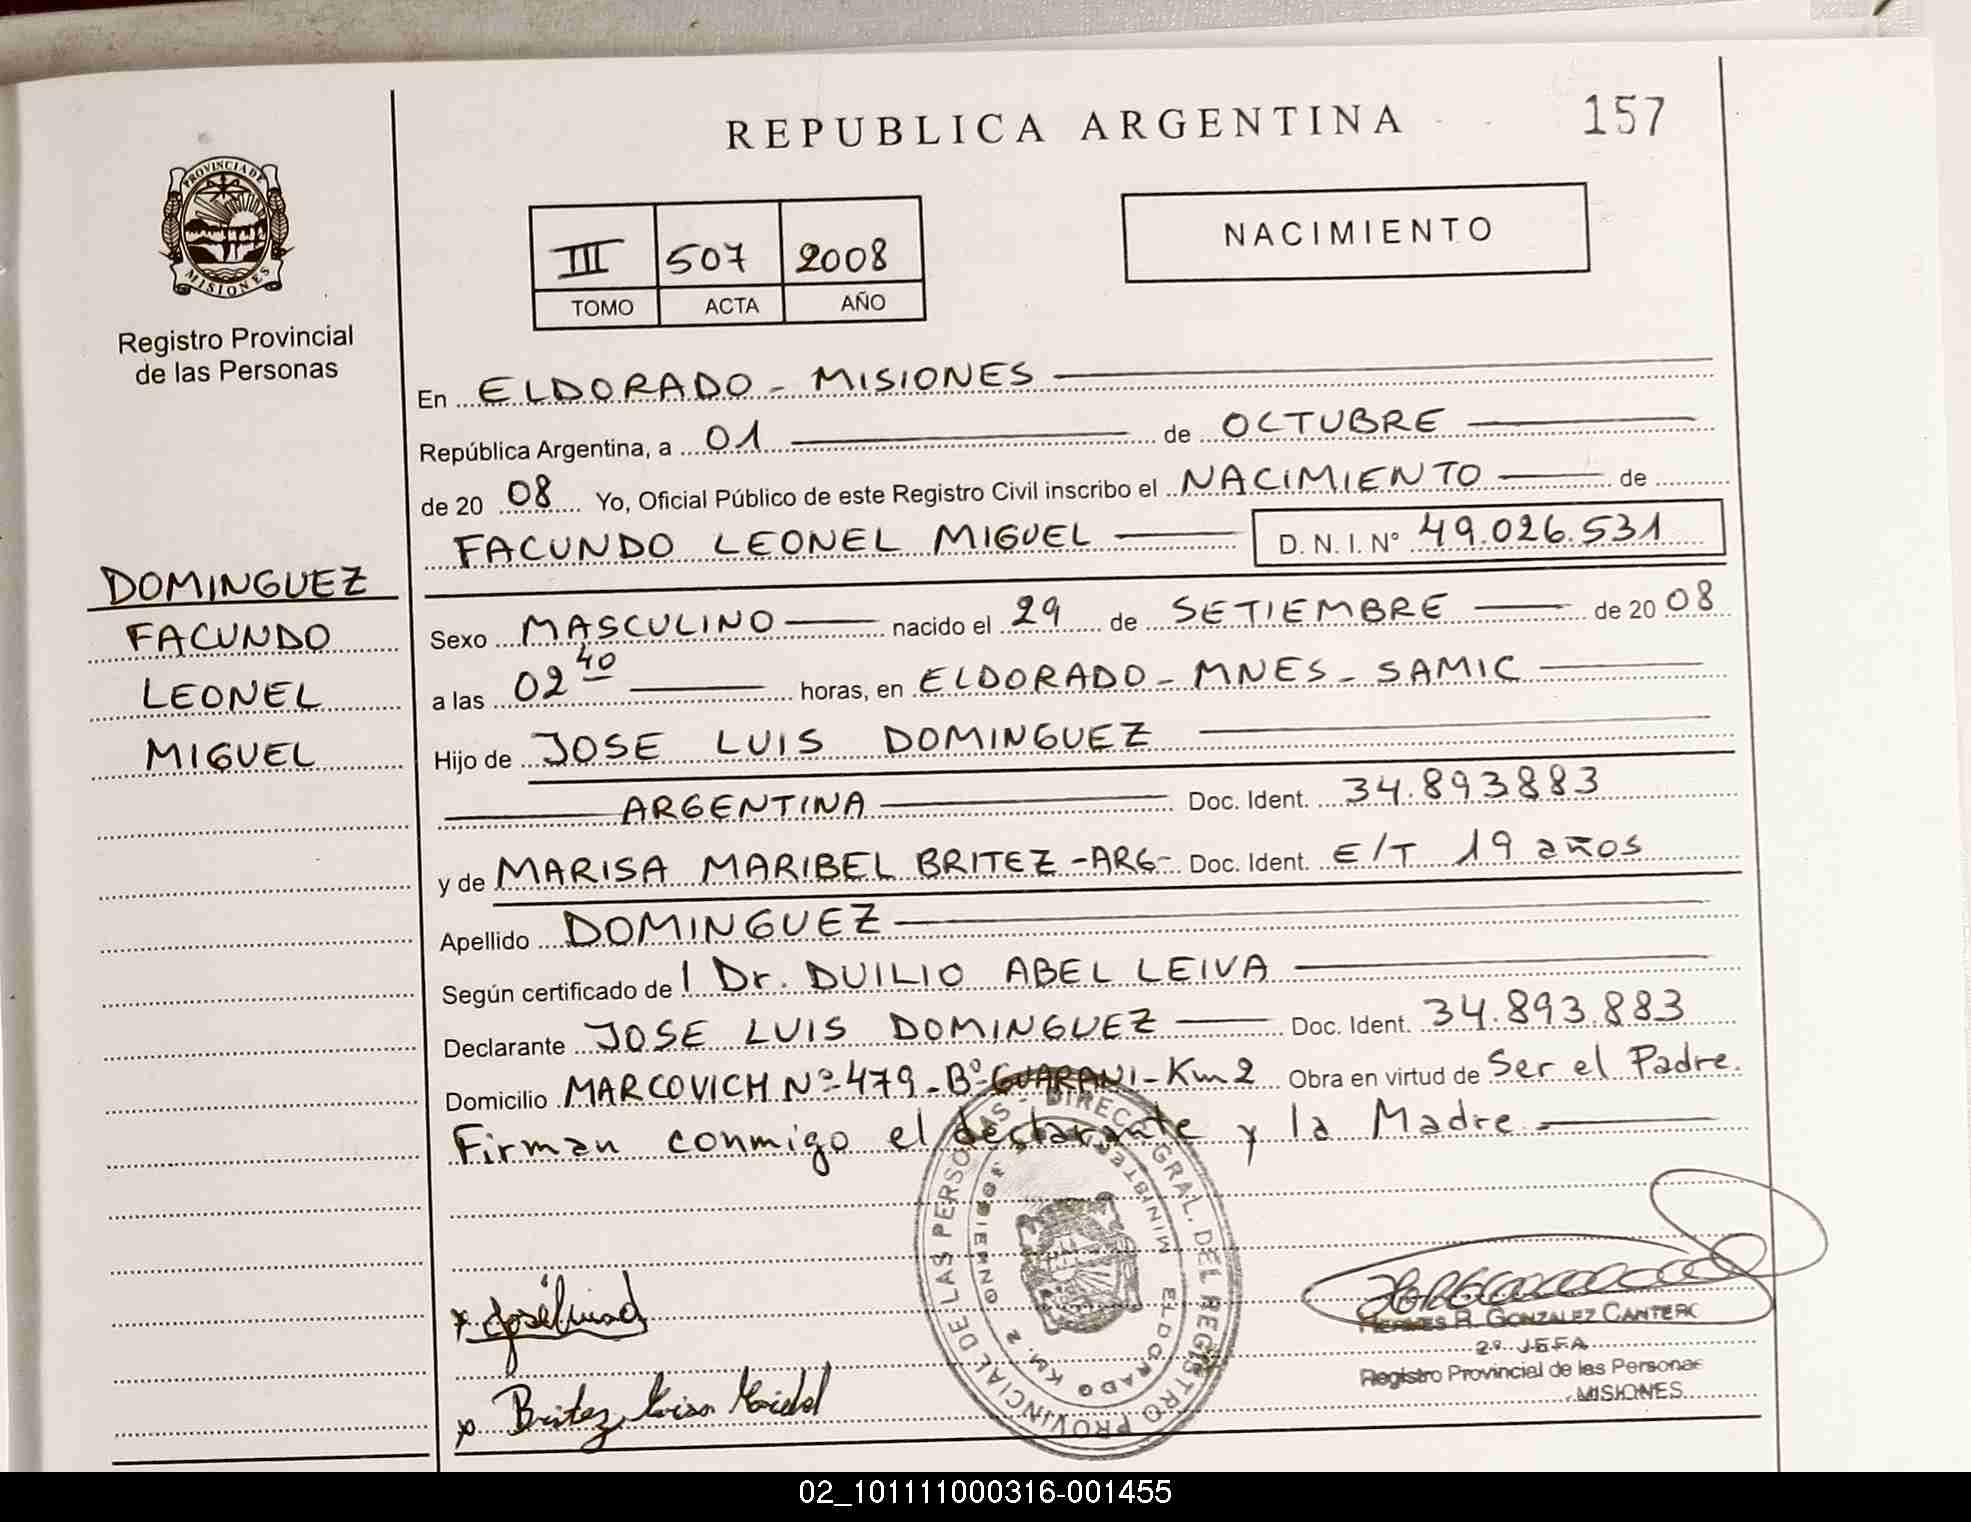 REPUBLICA ARGENTINA
157
PROVINCIA DE
MISIONES
Registro Provincial
de las Personas
III 507 2008
TOMO ACTA AÑO
NACIMIENTO
En ELDORADO - MISIONES
República Argentina, a 01 de OCTUBRE
de 20 08 Yo, Oficial Público de este Registro Civil inscribo el NACIMIENTO de
FACUNDO LEONEL MIGUEL D. N. I. N° 49.026.531
DOMINGUEZ
FACUNDO
LEONEL
MIGUEL
Sexo MASCULINO nacido el 29 de SETIEMBRE de 20 08
a las 02 40 horas, en ELDORADO - MNES - SAMIC
Hijo de JOSE LUIS DOMINGUEZ
ARGENTINA Doc. Ident. 34.893883
y de MARISA MARIBEL BRITEZ -ARG- Doc. Ident. E/T 19 años
Apellido DOMINGUEZ
Según certificado de l Dr. DUILIO ABEL LEIVA
Declarante JOSE LUIS DOMINGUEZ Doc. Ident. 34.893.883
Domicilio MARCOVICH Nº 479 - Bº GUARANI - Km 2 Obra en virtud de Ser el Padre.
Firman conmigo el declarante y la Madre
DIREC. GRAL. DEL REGISTRO PROVINCIAL DE LAS PERSONAS
GOBIERNO
ELDORADO KM. 2
x
x Britez
HERMES R. GONZALEZ CANTERO
2º JEFA
Registro Provincial de las Personas
MISIONES
02_101111000316-001455